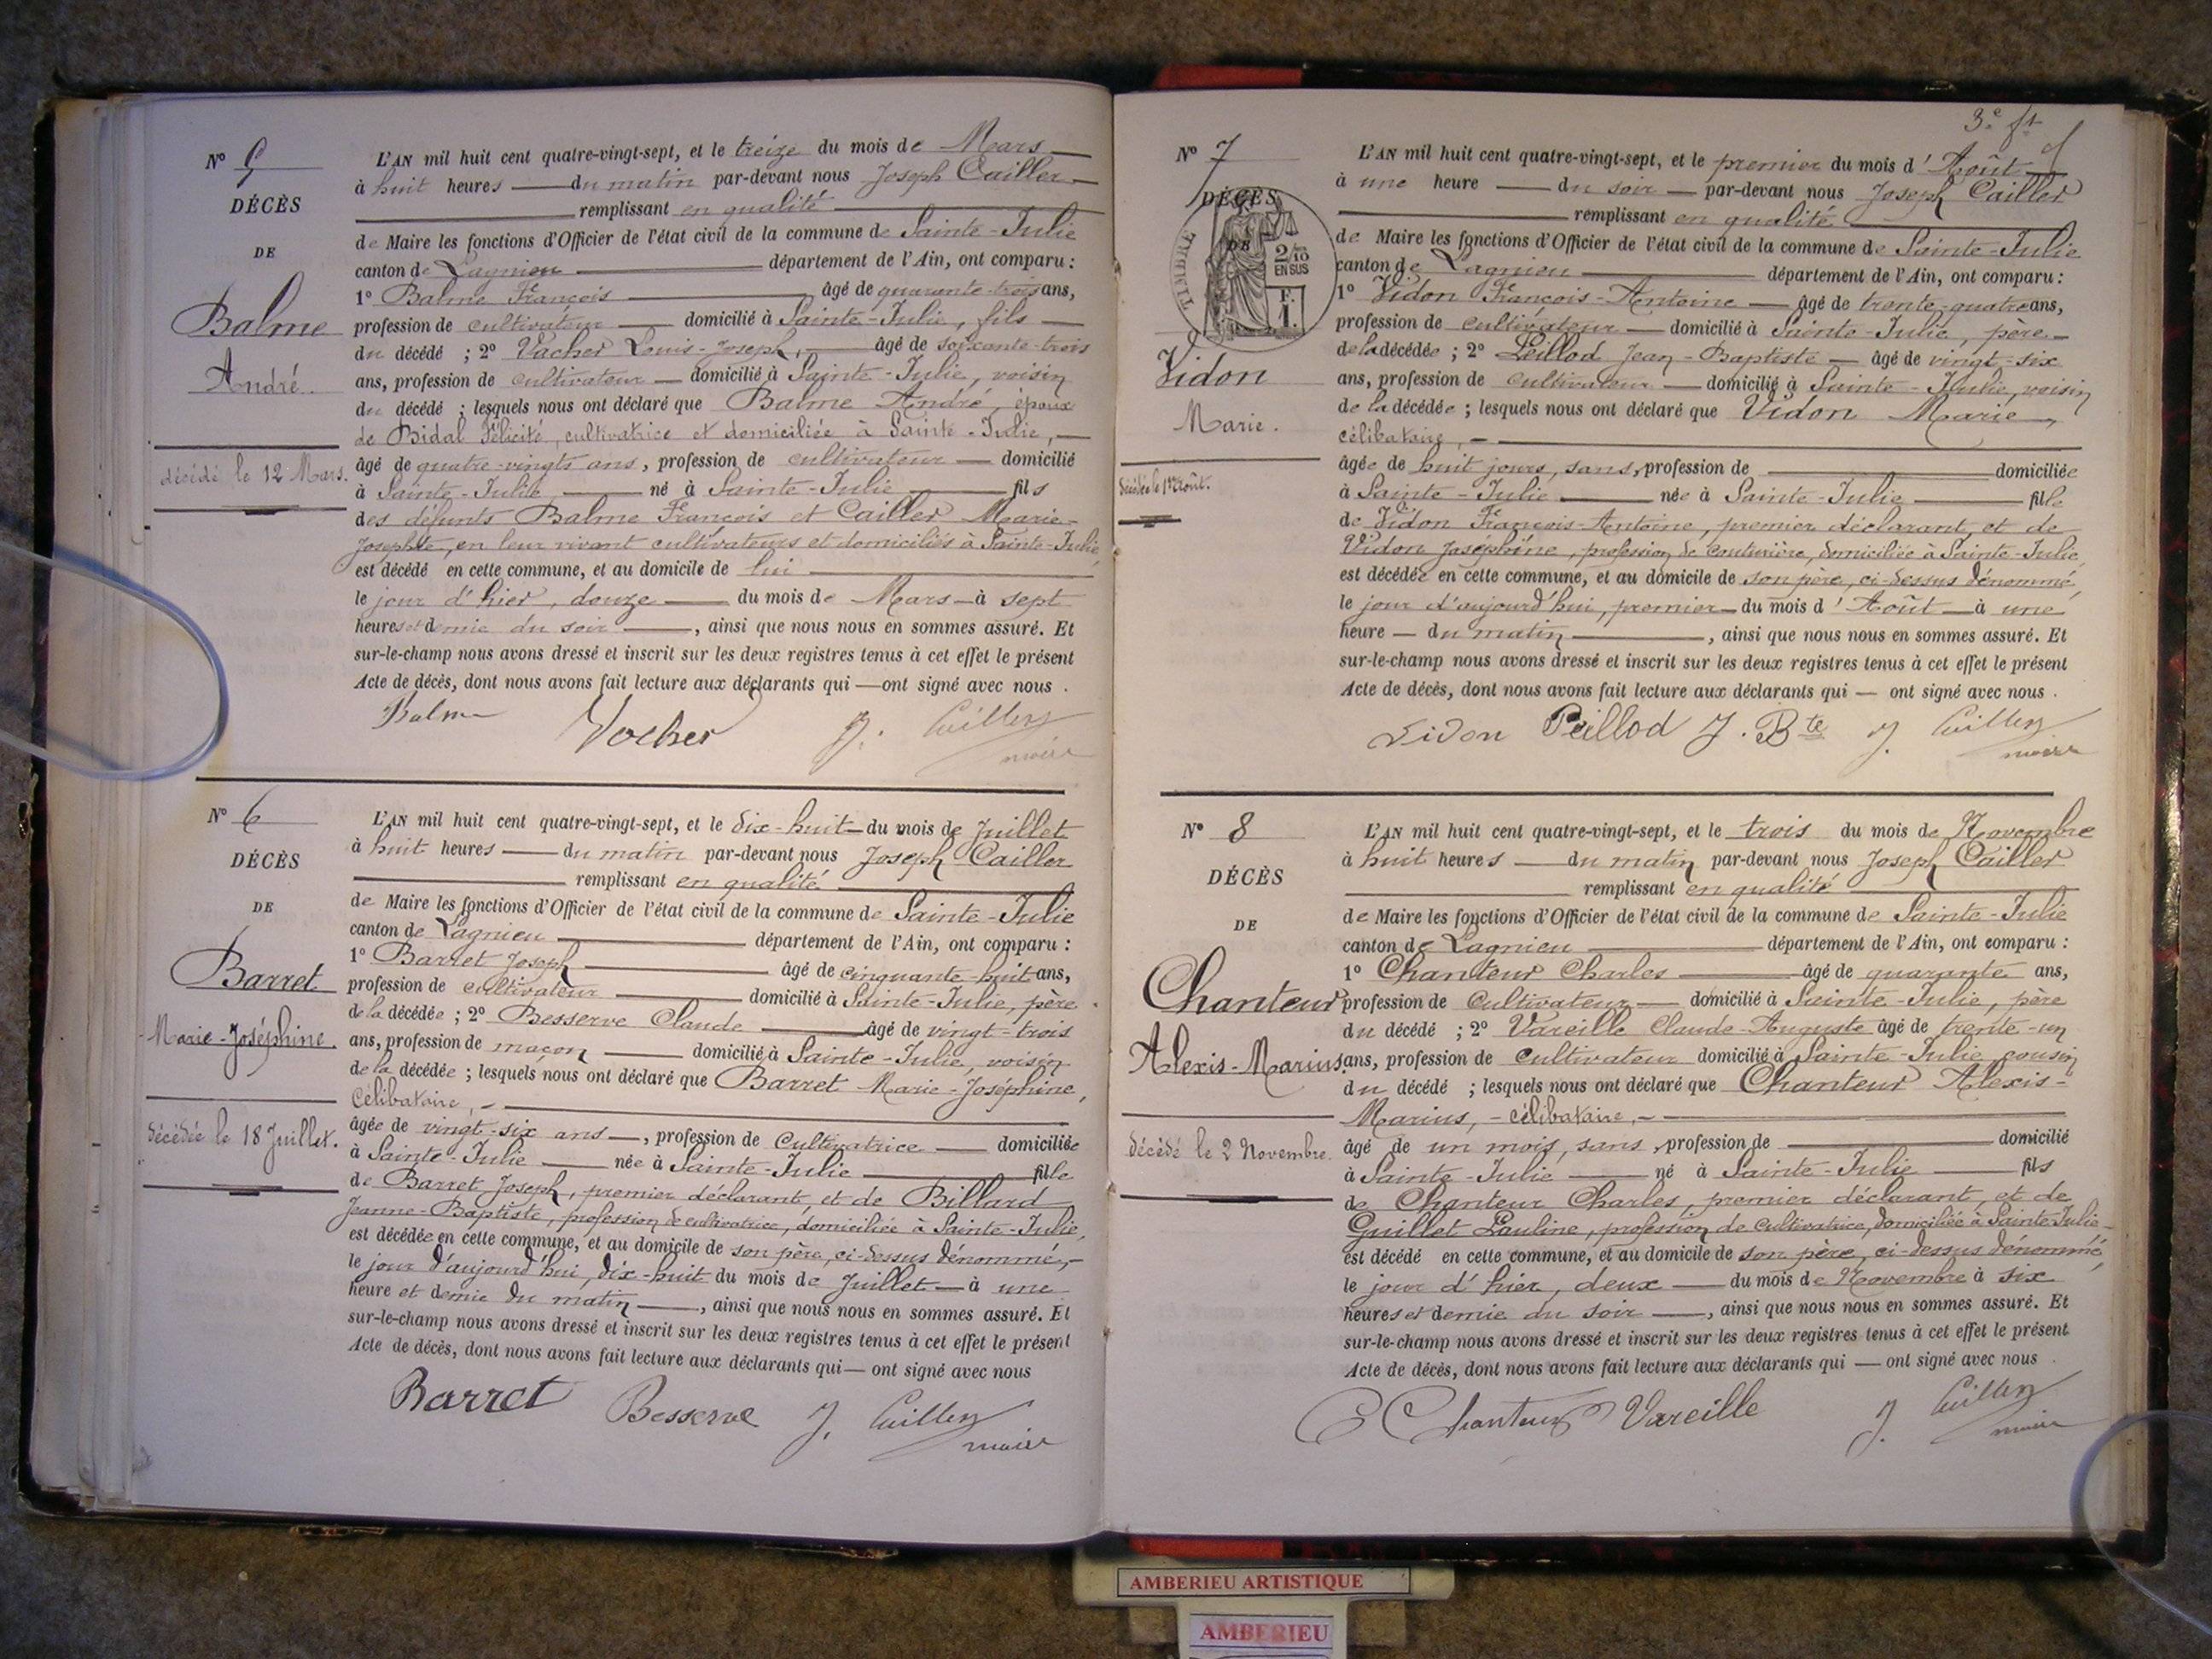 Nº 5
DÉCÈS
DE
Balme
André.
décédé le 12 Mars.
L'AN mil huit cent quatre-vingt-sept, et le treize du mois de Mars
à huit heures du matin par-devant nous Joseph Cailler
remplissant en qualité
de Maire les fonctions d'Officier de l'état civil de la commune de Sainte-Julie
canton de Lagnieu département de l'Ain, ont comparu :
1º Balme François âgé de quarante-trois ans,
profession de cultivateur domicilié à Sainte-Julie, fils
du décédé ; 2º Vacher Louis-Joseph, âgé de soixante-trois
ans, profession de cultivateur domicilié à Sainte-Julie, voisin
du décédé ; lesquels nous ont déclaré que Balme André, époux
de Bidal Félicité, cultivatrice et domiciliée à Sainte-Julie,
âgé de quatre-vingts ans, profession de cultivateur domicilié
à Sainte-Julie né à Sainte-Julie fils
des défunts Balme François et Cailler Marie-
Josephte, en leur vivant cultivateurs et domiciliés à Sainte-Julie,
est décédé en cette commune, et au domicile de lui
le jour d'hier, douze du mois de Mars à sept
heures et demie du soir, ainsi que nous nous en sommes assuré. Et
sur-le-champ nous avons dressé et inscrit sur les deux registres tenus à cet effet le présent
Acte de décès, dont nous avons fait lecture aux déclarants qui — ont signé avec nous.
Balme Vacher J. Cailler
maire
Nº 6
DÉCÈS
DE
Barret
Marie-Joséphine.
décédée le 18 Juillet.
L'AN mil huit cent quatre-vingt-sept, et le dix-huit du mois de Juillet
à huit heures du matin par-devant nous Joseph Cailler
remplissant en qualité
de Maire les fonctions d'Officier de l'état civil de la commune de Sainte-Julie
canton de Lagnieu département de l'Ain, ont comparu :
1º Barret Joseph âgé de cinquante-huit ans,
profession de cultivateur domicilié à Sainte-Julie, père
de la décédée ; 2º Besserve Claude âgé de vingt-trois
ans, profession de maçon domicilié à Sainte-Julie, voisin
de la décédée ; lesquels nous ont déclaré que Barret Marie-Joséphine,
célibataire, -
âgée de vingt-six ans, profession de cultivatrice domiciliée
à Sainte-Julie née à Sainte-Julie fille
de Barret Joseph, premier déclarant, et de Billard
Jeanne-Baptiste, profession de cultivatrice, domiciliée à Sainte-Julie,
est décédée en cette commune, et au domicile de son père, ci-dessus dénommé,
le jour d'aujourd'hui, dix-huit du mois de Juillet à une
heure et demie du matin, ainsi que nous nous en sommes assuré. Et
sur-le-champ nous avons dressé et inscrit sur les deux registres tenus à cet effet le présent
Acte de décès, dont nous avons fait lecture aux déclarants qui — ont signé avec nous
Barret Besserve J. Cailler
maire
3e ft
Nº 7
DÉCÈS
DE
TIMBRE
2/10
EN SUS
F.
1.
Vidon
Marie.
décédée le 1er Août.
L'AN mil huit cent quatre-vingt-sept, et le premier du mois d'Août
à une heure du soir par-devant nous Joseph Cailler
remplissant en qualité
de Maire les fonctions d'Officier de l'état civil de la commune de Sainte-Julie
canton de Lagnieu département de l'Ain, ont comparu :
1º Vidon François-Antoine âgé de trente-quatre ans,
profession de cultivateur domicilié à Sainte-Julie, père
de la décédée ; 2º Peillod Jean-Baptiste âgé de vingt-six
ans, profession de cultivateur domicilié à Sainte-Julie, voisin
de la décédée ; lesquels nous ont déclaré que Vidon Marie,
célibataire, -
âgée de huit jours, sans, profession de domiciliée
à Sainte-Julie née à Sainte-Julie fille
de Vidon François-Antoine, premier déclarant, et de
Vidon Joséphine, profession de couturière, domiciliée à Sainte-Julie,
est décédée en cette commune, et au domicile de son père, ci-dessus dénommé,
le jour d'aujourd'hui, premier du mois d'Août à une
heure du matin, ainsi que nous nous en sommes assuré. Et
sur-le-champ nous avons dressé et inscrit sur les deux registres tenus à cet effet le présent
Acte de décès, dont nous avons fait lecture aux déclarants qui — ont signé avec nous.
Vidon Peillod J. Bte J. Cailler
maire
Nº 8
DÉCÈS
DE
Chanteur
Alexis-Marius
décédé le 2 Novembre.
L'AN mil huit cent quatre-vingt-sept, et le trois du mois de Novembre
à huit heures du matin par-devant nous Joseph Cailler
remplissant en qualité
de Maire les fonctions d'Officier de l'état civil de la commune de Sainte-Julie
canton de Lagnieu département de l'Ain, ont comparu :
1º Chanteur Charles âgé de quarante ans,
profession de cultivateur domicilié à Sainte-Julie, père
du décédé ; 2º Vareille Claude-Auguste âgé de trente-un
ans, profession de cultivateur domicilié à Sainte-Julie, cousin
du décédé ; lesquels nous ont déclaré que Chanteur Alexis-
Marius, - célibataire, -
âgé de un mois, sans, profession de domicilié
à Sainte-Julie né à Sainte-Julie fils
de Chanteur Charles, premier déclarant, et de
Guillet Pauline, profession de cultivatrice, domiciliée à Sainte-Julie
est décédé en cette commune, et au domicile de son père, ci-dessus dénommé,
le jour d'hier, deux du mois de Novembre à six
heures et demie du soir, ainsi que nous nous en sommes assuré. Et
sur-le-champ nous avons dressé et inscrit sur les deux registres tenus à cet effet le présent
Acte de décès, dont nous avons fait lecture aux déclarants qui — ont signé avec nous.
C Chanteur Vareille J. Cailler
maire
AMBERIEU ARTISTIQUE
AMBERIEU